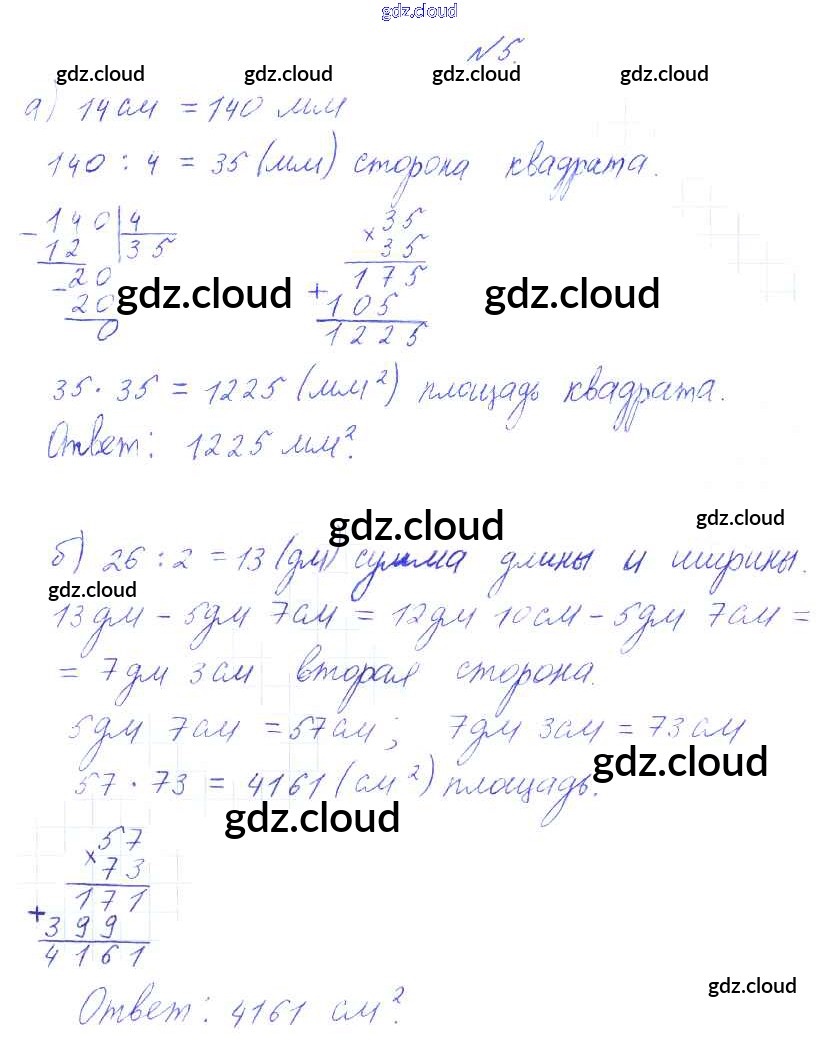 gdz.cloud
№5.
gdz.cloud gdz.cloud gdz.cloud gdz.cloud
а) 14 см = 140 мм
140 : 4 = 35 (мм) сторона квадрата.
- 140 | 4
12 35
- 20
20
0
× 35
35
175
+ 105
1225
gdz.cloud gdz.cloud
35 · 35 = 1225 (мм²) площадь квадрата.
Ответ: 1225 мм².
gdz.cloud gdz.cloud
б) 26 : 2 = 13 (дм) сумма длины и ширины.
gdz.cloud
13 дм - 5 дм 7 см = 12 дм 10 см - 5 дм 7 см =
= 7 дм 3 см вторая сторона.
5 дм 7 см = 57 см; 7 дм 3 см = 73 см
gdz.cloud
57 · 73 = 4161 (см²) площадь.
gdz.cloud
× 57
73
171
+ 399
4161
gdz.cloud
Ответ: 4161 см².